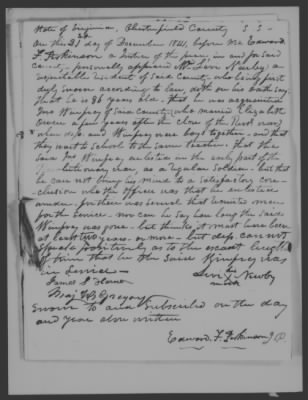 State of Virginia, Chesterfield County S S
On this 31 day of December 1841, before me Edward
F. a Justice of the peace in and for said
county, personally appeared Mr. Levi Newby a
respectable resident of said County who being first
duly sworn according to law, doth on his oath say
that he is 86 years old, that he was acquainted
Jno Winfrey of said County, who married Elizabeth
a few years after the close of the Revt war
when depo. and Winfrey were boys together, and that
they went to school to the same teacher, that the
said Jno Winfrey enlisted in the early part of the
Revolutionary war, as a regular Soldier, but that
he can not bring his mind to a satisfactory con-
clusion who the officer was that he enlisted
under, for there was several that recruited men
for the service, nor can he say how long the said
Winfrey was gone, but thinks it must have been
at least two years, or more, but depo. can not
speak positively as to the exact length
of time that he the said Winfrey was
in service
his
Levi X Newby
mark
James
Gregory
Sworn to and subscribed on the day
and year above written
Edward F. J P